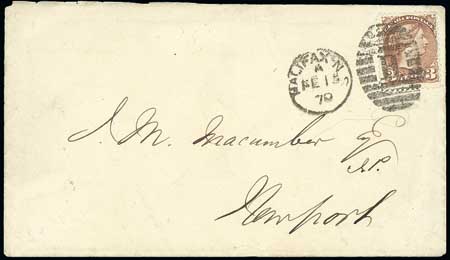 HALIFAX N.
A
FE 15
70
3
J. M. Macumber Esq
M.P.
Newport